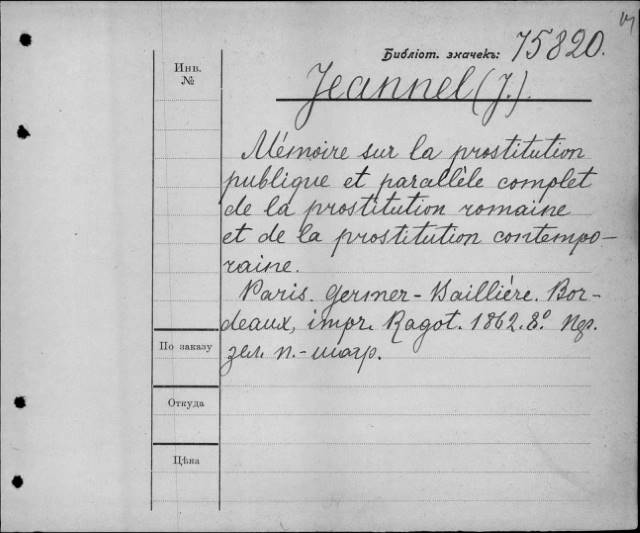 Библіот. значекъ: 75820.
Инв. №
Jeannel (J.).
Mémoire sur la prostitution
publique et parallèle complet
de la prostitution romaine
et de la prostitution contempo-
raine.
Paris. Germer-Baillière. Bor-
deaux, impr. Ragot. 1862. 8º. Пер.
зел. п.-шагр.
По заказу
Откуда
Цѣна